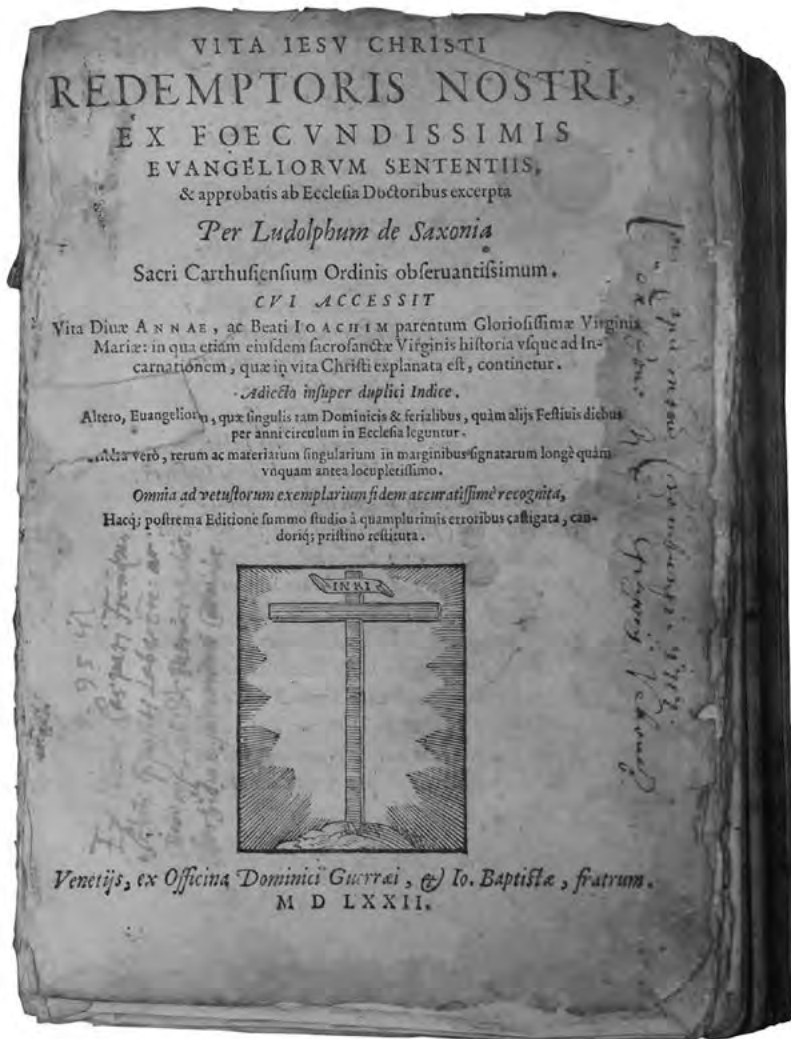 VITA IESV CHRISTI
REDEMPTORIS NOSTRI,
EX FOECVNDISSIMIS
EVANGELIORVM SENTENTIIS,
& approbatis ab Ecclesia Doctoribus excerpta
Per Ludolphum de Saxonia
Sacri Carthusiensium Ordinis obseruantissimum.
CVI ACCESSIT
Vita Diuæ ANNAE, ac Beati IOACHIM parentum Gloriosissimæ Virginis
Mariæ: in qua etiam eiusdem sacrosanctæ Virginis historia vsque ad In-
carnationem, quæ in vita Christi explanata est, continetur.
Adiecto insuper duplici Indice.
Altero, Euangeliorum, quæ singulis tam Dominicis & ferialibus, quàm alijs Festiuis diebus
per anni circulum in Ecclesia leguntur.
verò, rerum ac materiarum singularium in marginibus signatarum longè quàm
vnquam antea locupletissimo.
Omnia ad vetustorum exemplarium fidem accuratissimè recognita,
Hacq; postrema Editione summo studio à quamplurimis erroribus castigata, can-
doriq; pristino restituta.
INRI
Venetijs, ex Officina Dominici Guerræi, & Io. Baptistæ, fratrum.
M D LXXII.